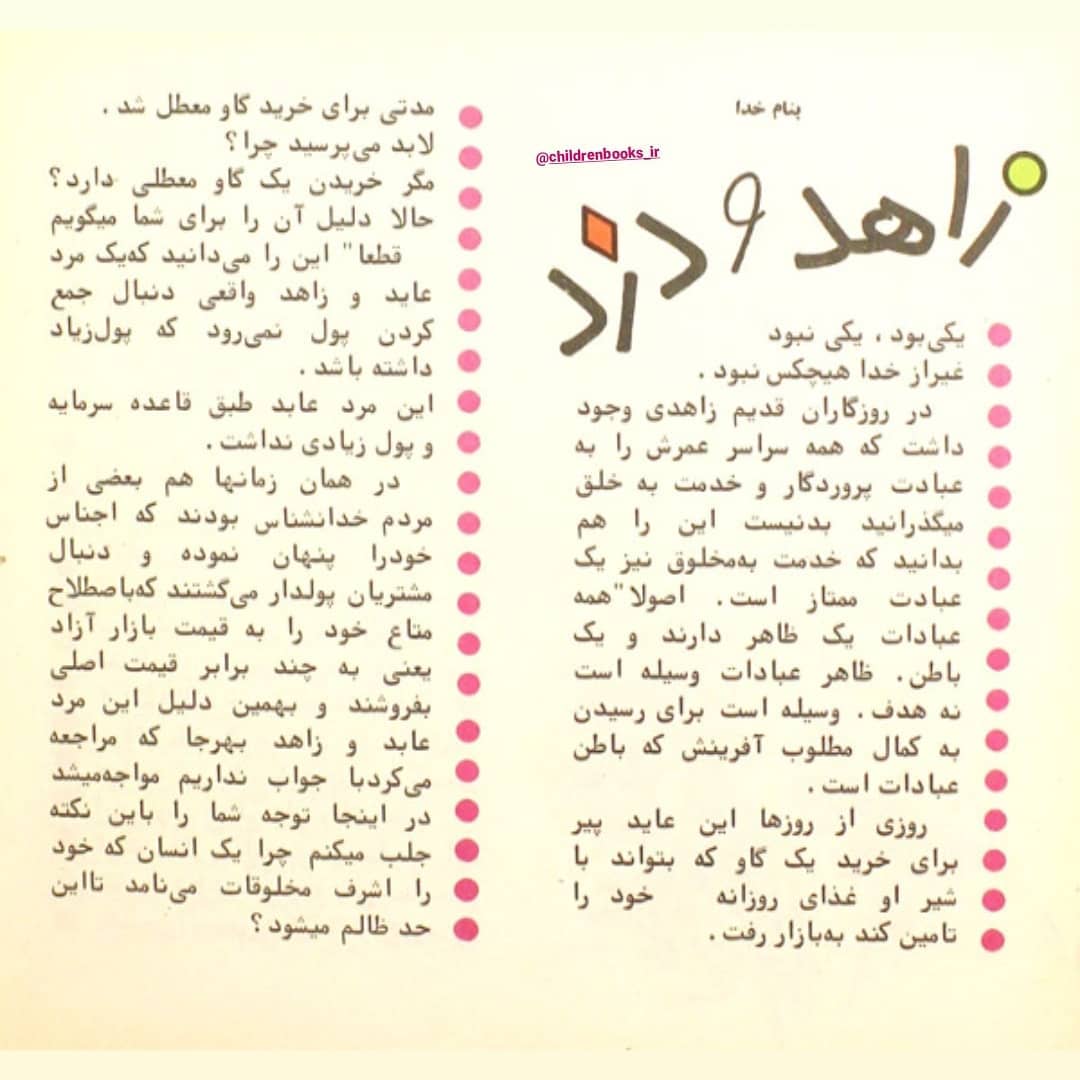 بنام خدا
@childrenbooks_ir
زاهد و دزد
یکی‌بود ، یکی نبود
غیراز خدا هیچکس نبود .
در روزگاران قدیم زاهدی وجود
داشت که همه سراسر عمرش را به
عبادت پروردگار و خدمت به خلق
میگذرانید بدنیست این را هم
بدانید که خدمت به‌مخلوق نیز یک
عبادت ممتاز است . اصولا"همه
عبادات یک ظاهر دارند و یک
باطن . ظاهر عبادات وسیله است
نه هدف . وسیله است برای رسیدن
به کمال مطلوب آفرینش که باطن
عبادات است .
روزی از روزها این عابد پیر
برای خرید یک گاو که بتواند با
شیر او غذای روزانه خود را
تامین کند به‌بازار رفت .
مدتی برای خرید گاو معطل شد .
لابد می‌پرسید چرا ؟
مگر خریدن یک گاو معطلی دارد ؟
حالا دلیل آن را برای شما میگویم
قطعا" این را می‌دانید که‌یک مرد
عابد و زاهد واقعی دنبال جمع
کردن پول نمی‌رود که پول‌زیاد
داشته باشد .
این مرد عابد طبق قاعده سرمایه
و پول زیادی نداشت .
در همان زمانها هم بعضی از
مردم خدانشناس بودند که اجناس
خودرا پنهان نموده و دنبال
مشتریان پولدار می‌گشتند که‌باصطلاح
متاع خود را به قیمت بازار آزاد
یعنی به چند برابر قیمت اصلی
بفروشند و بهمین دلیل این مرد
عابد و زاهد بهرجا که مراجعه
می‌کردبا جواب نداریم مواجه‌میشد
در اینجا توجه شما را باین نکته
جلب میکنم چرا یک انسان که خود
را اشرف مخلوقات می‌نامد تااین
حد ظالم میشود ؟